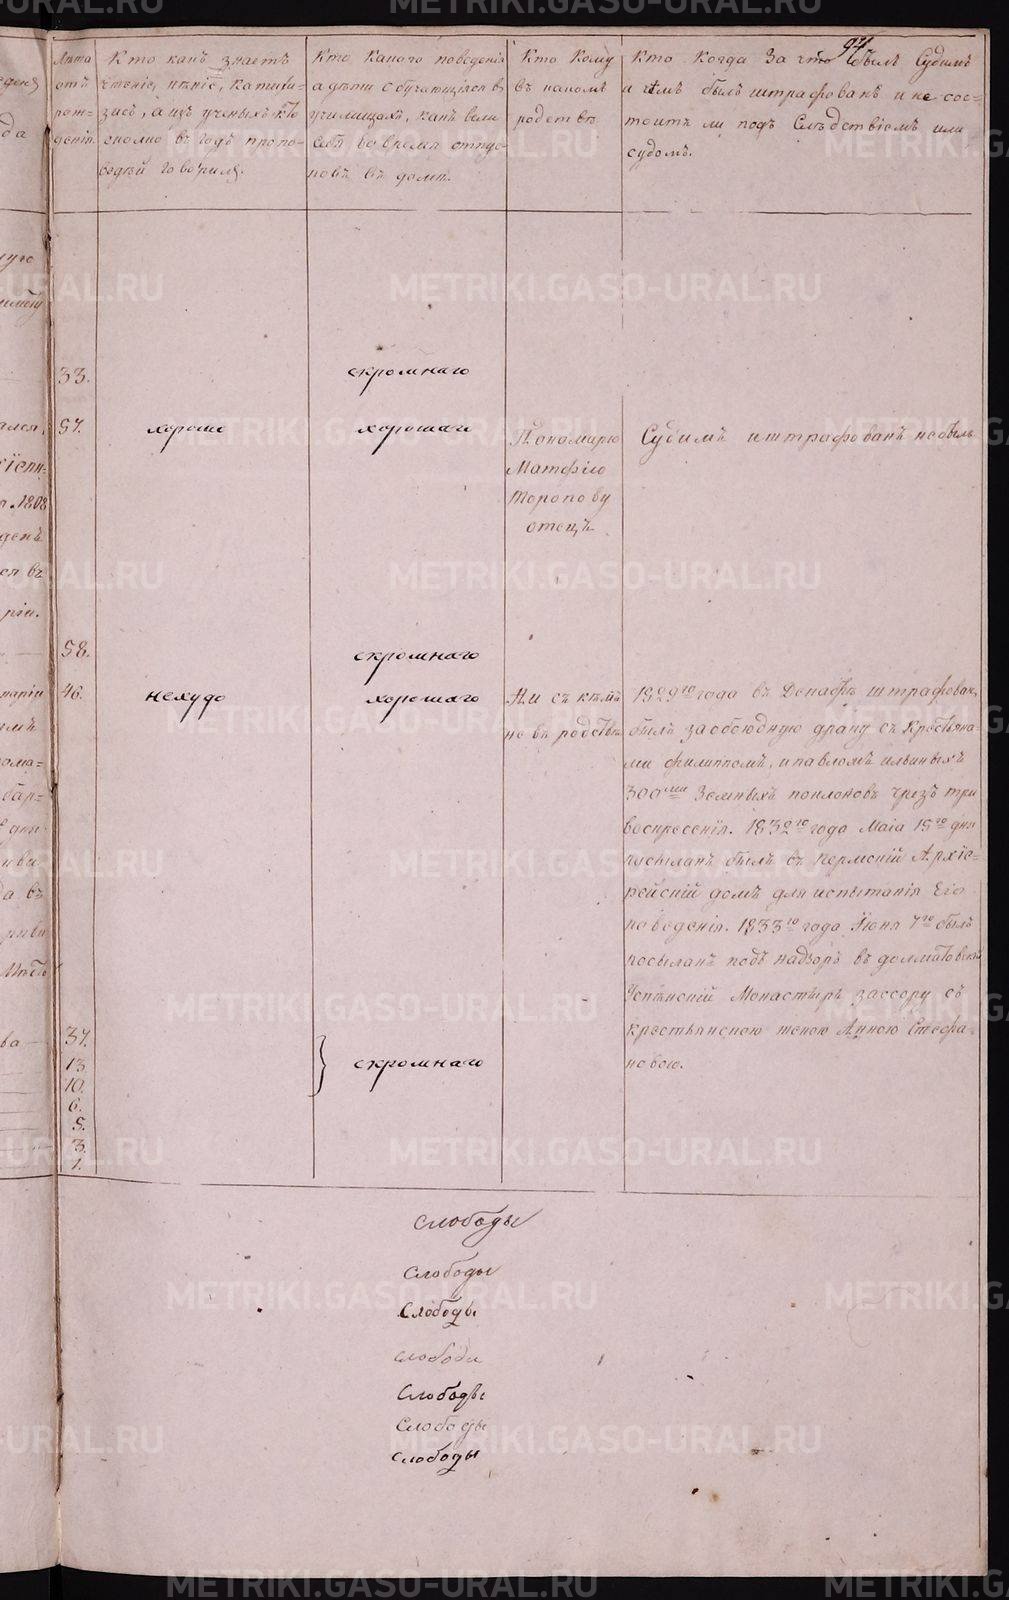 94
Лѣта
отъ
рож-
денія.
Кто какъ знаетъ
чтеніе, пѣніе, катихи-
зисъ, а изъ ученыхъ кто
сколко въ годъ пропо-
ведей говорилъ.
Кто какого поведенія
а дѣти обучающіяся въ
училищахъ, какъ вели
себя во время отпус-
ковъ въ домъ.
Кто кому
въ какомъ
родствѣ
Кто когда За что былъ Судимъ
и чѣмъ былъ штрафованъ и не сос-
тоитъ ли подъ Слѣдствіемъ или
судомъ.
33.
скромнаго
57.
хорошо
хорошаго
Пономарю
Матфію
Торопову
отецъ
Судимъ иштрафованъ небылъ
58.
скромнаго
46.
нехудо
хорошаго
Ни съ кѣмъ
не въ родствѣ
1829го года въ Декабрѣ штрафован
былъ заобоюдную драку съ Крестьяна-
ми Филиппомъ, и павломъ ильиныхъ
300ми Земныхъ поклоновъ чрезъ три
воскресенія. 1832го года Маіа 15го дня
посыланъ былъ въ пермскій Архіе-
рейскій домъ для испытанія Его
поведенія. 1833го года Іюня 7го былъ
посыланъ подъ надзоръ въ долматовскій
Успѣнскій Монастырь зассору съ
крестьянскою женою Анною Стефа-
новою.
37.
13
10.
6.
5.
3.
1.
скромнаго
слободы
Слободы
Слободы
слободы
Слободы
Слободы
Слободы
METRIKI.GASO-URAL.RU